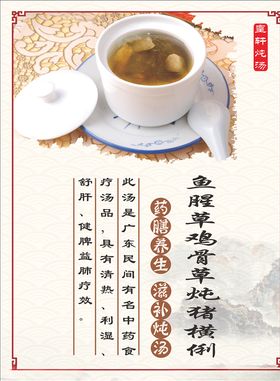 皇轩炖汤
鱼腥草鸡骨草炖猪横俐
药膳养生 滋补炖汤
此汤是广东民间有名中药食
疗汤品，具有清热、利湿、
舒肝、健脾益肺疗效。